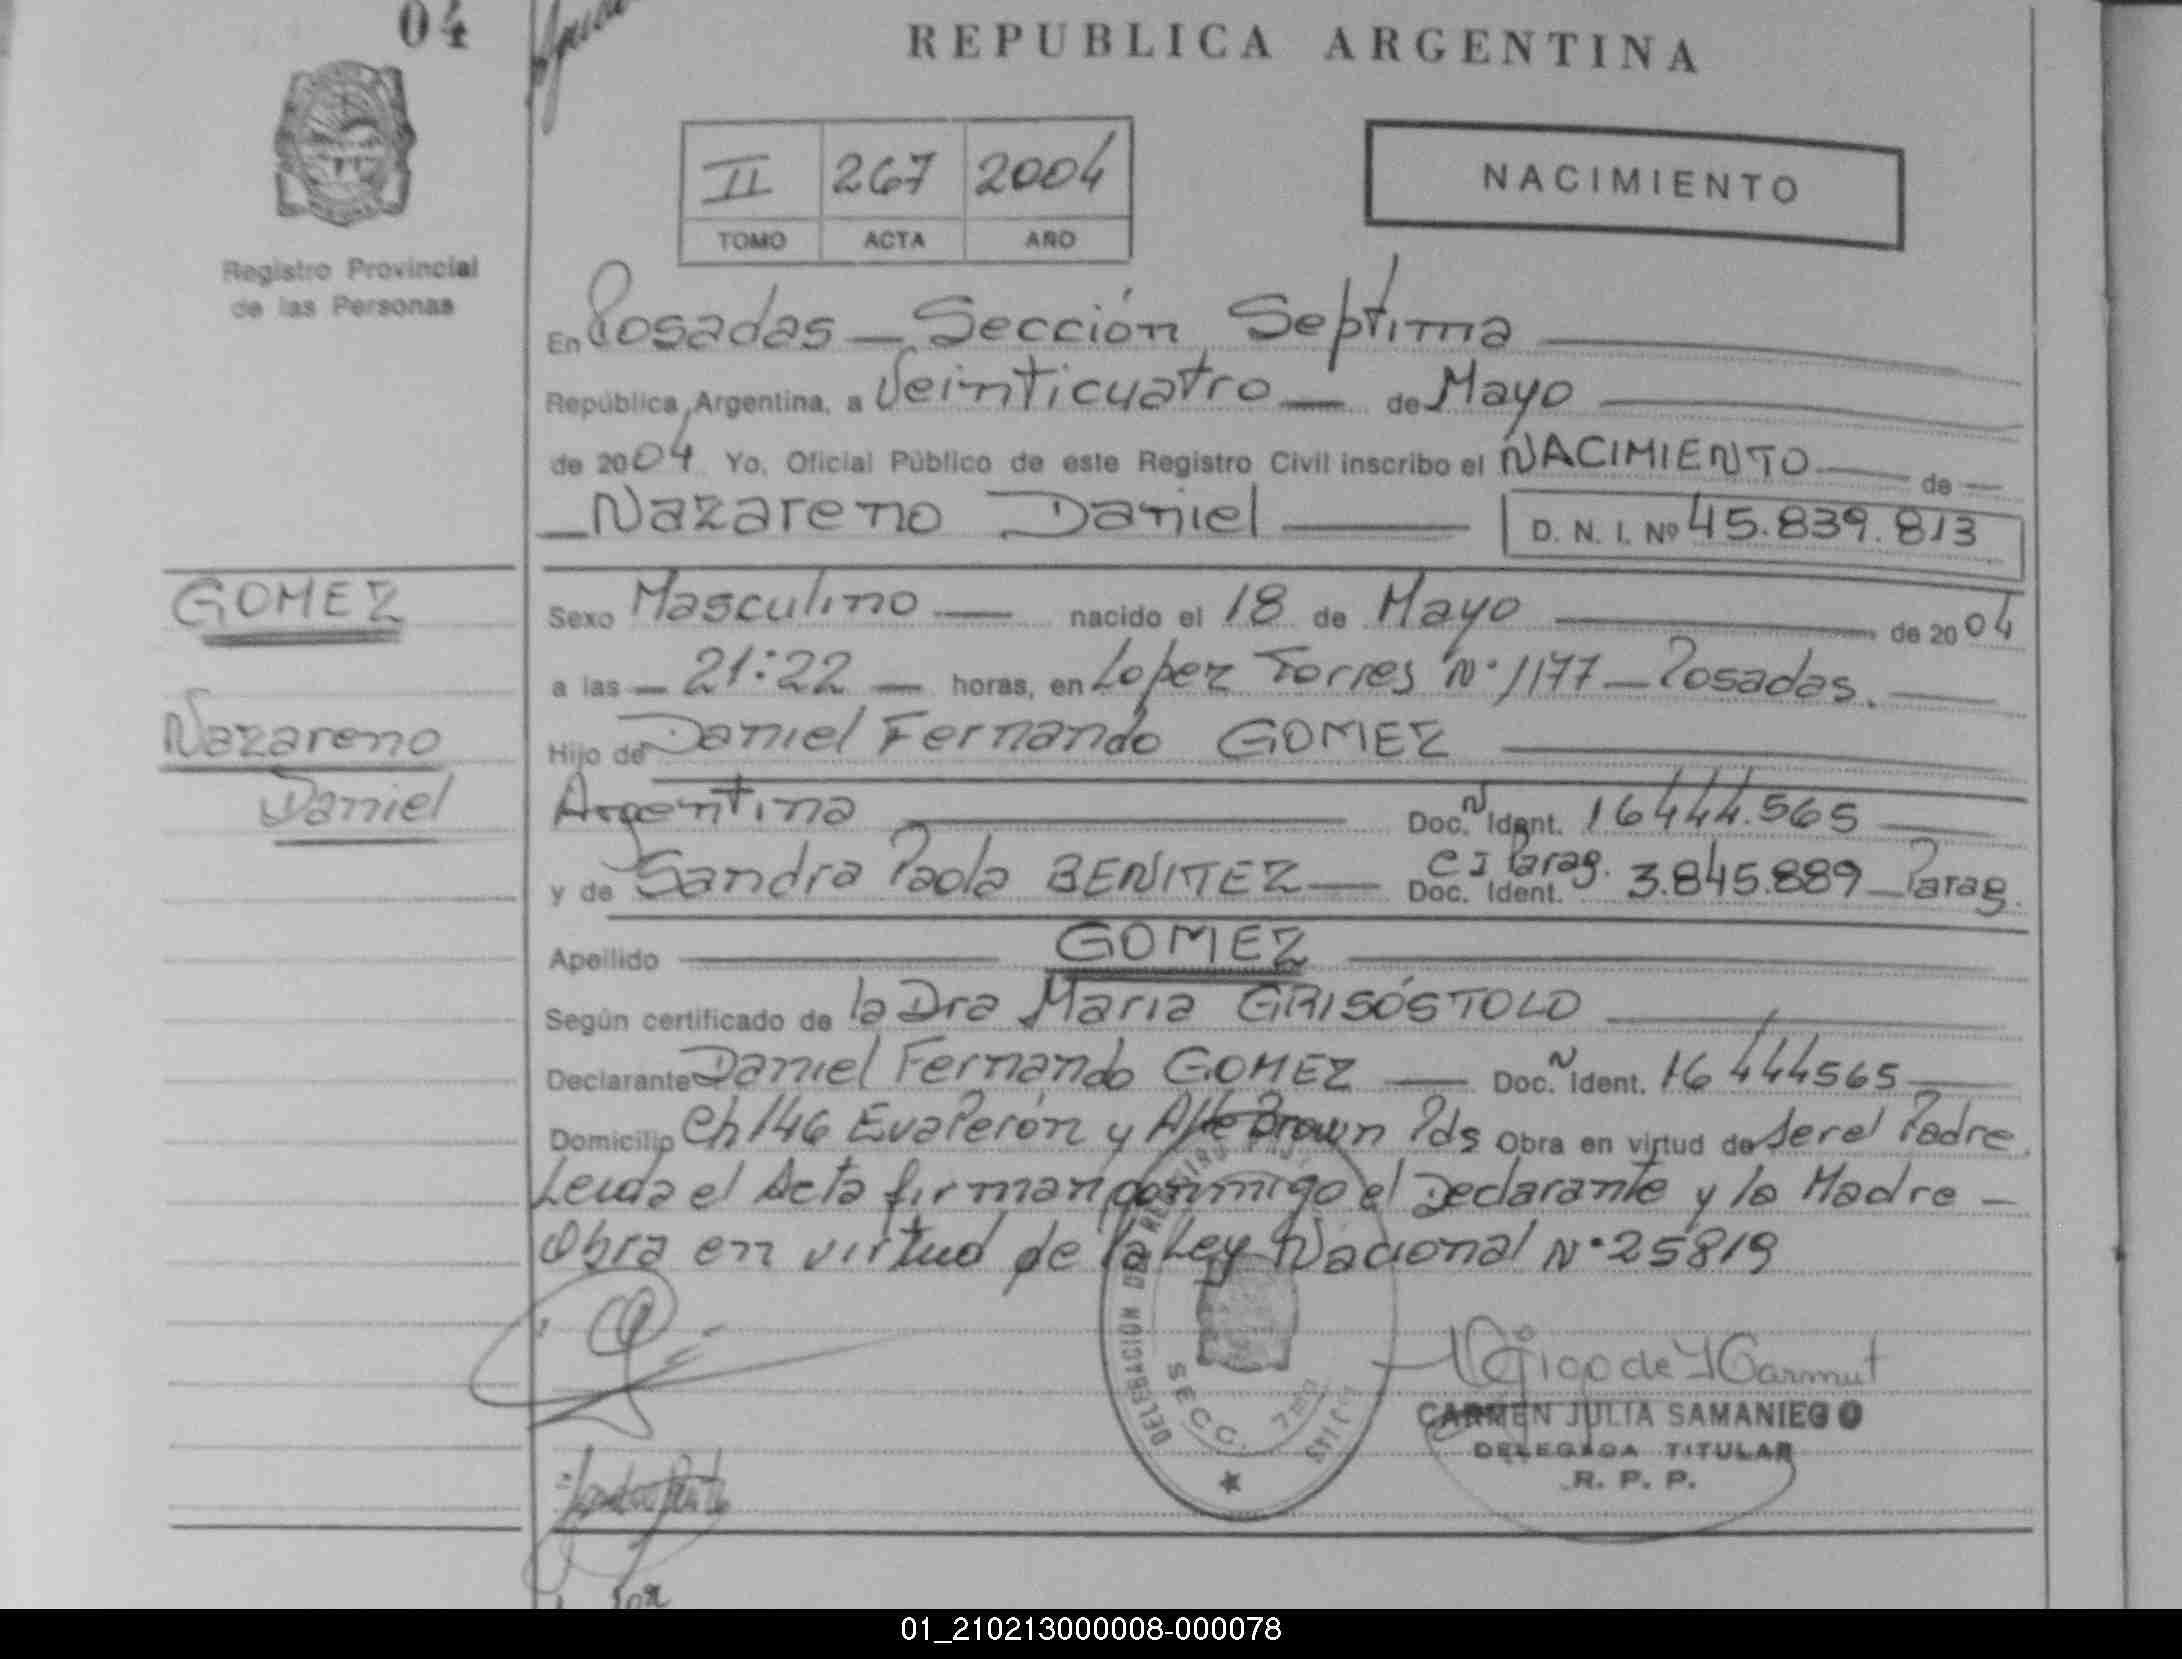 04
REPUBLICA ARGENTINA
II 267 2004
TOMO ACTA AÑO
NACIMIENTO
Registro Provincial
de las Personas
En Posadas — Sección Septima
República Argentina, a Veinticuatro — de Mayo
de 2004 Yo, Oficial Público de este Registro Civil inscribo el NACIMIENTO — de —
— Nazareno Daniel — D. N. I. Nº 45.839.813
GOMEZ
Sexo Masculino — nacido el 18 de Mayo — de 2004
a las — 21:22 — horas, en Lopez Torres N° 1177 — Posadas.
Nazareno
Hijo de Daniel Fernando GOMEZ
Daniel
Argentina — Doc. Ident. 16444.565
y de Sandra Paola BENITEZ — Doc. Ident. CI Parag. 3.845.889 — Parag.
Apellido — GOMEZ —
Según certificado de la Dra Maria GRISÓSTOLO
Declarante Daniel Fernando GOMEZ — Doc. Ident. 16444565
Domicilio Ch 146 Eva Perón y Alte Brown Pds Obra en virtud de ser el Padre.
Leida el Acta firman conmigo el Declarante y la Madre —
Obra en virtud de la Ley Nacional N° 25819
DELEGACION DEL REGISTRO
SECC. 7ma
CARMEN JULIA SAMANIEGO
DELEGADA TITULAR
R. P. P.
01_210213000008-000078